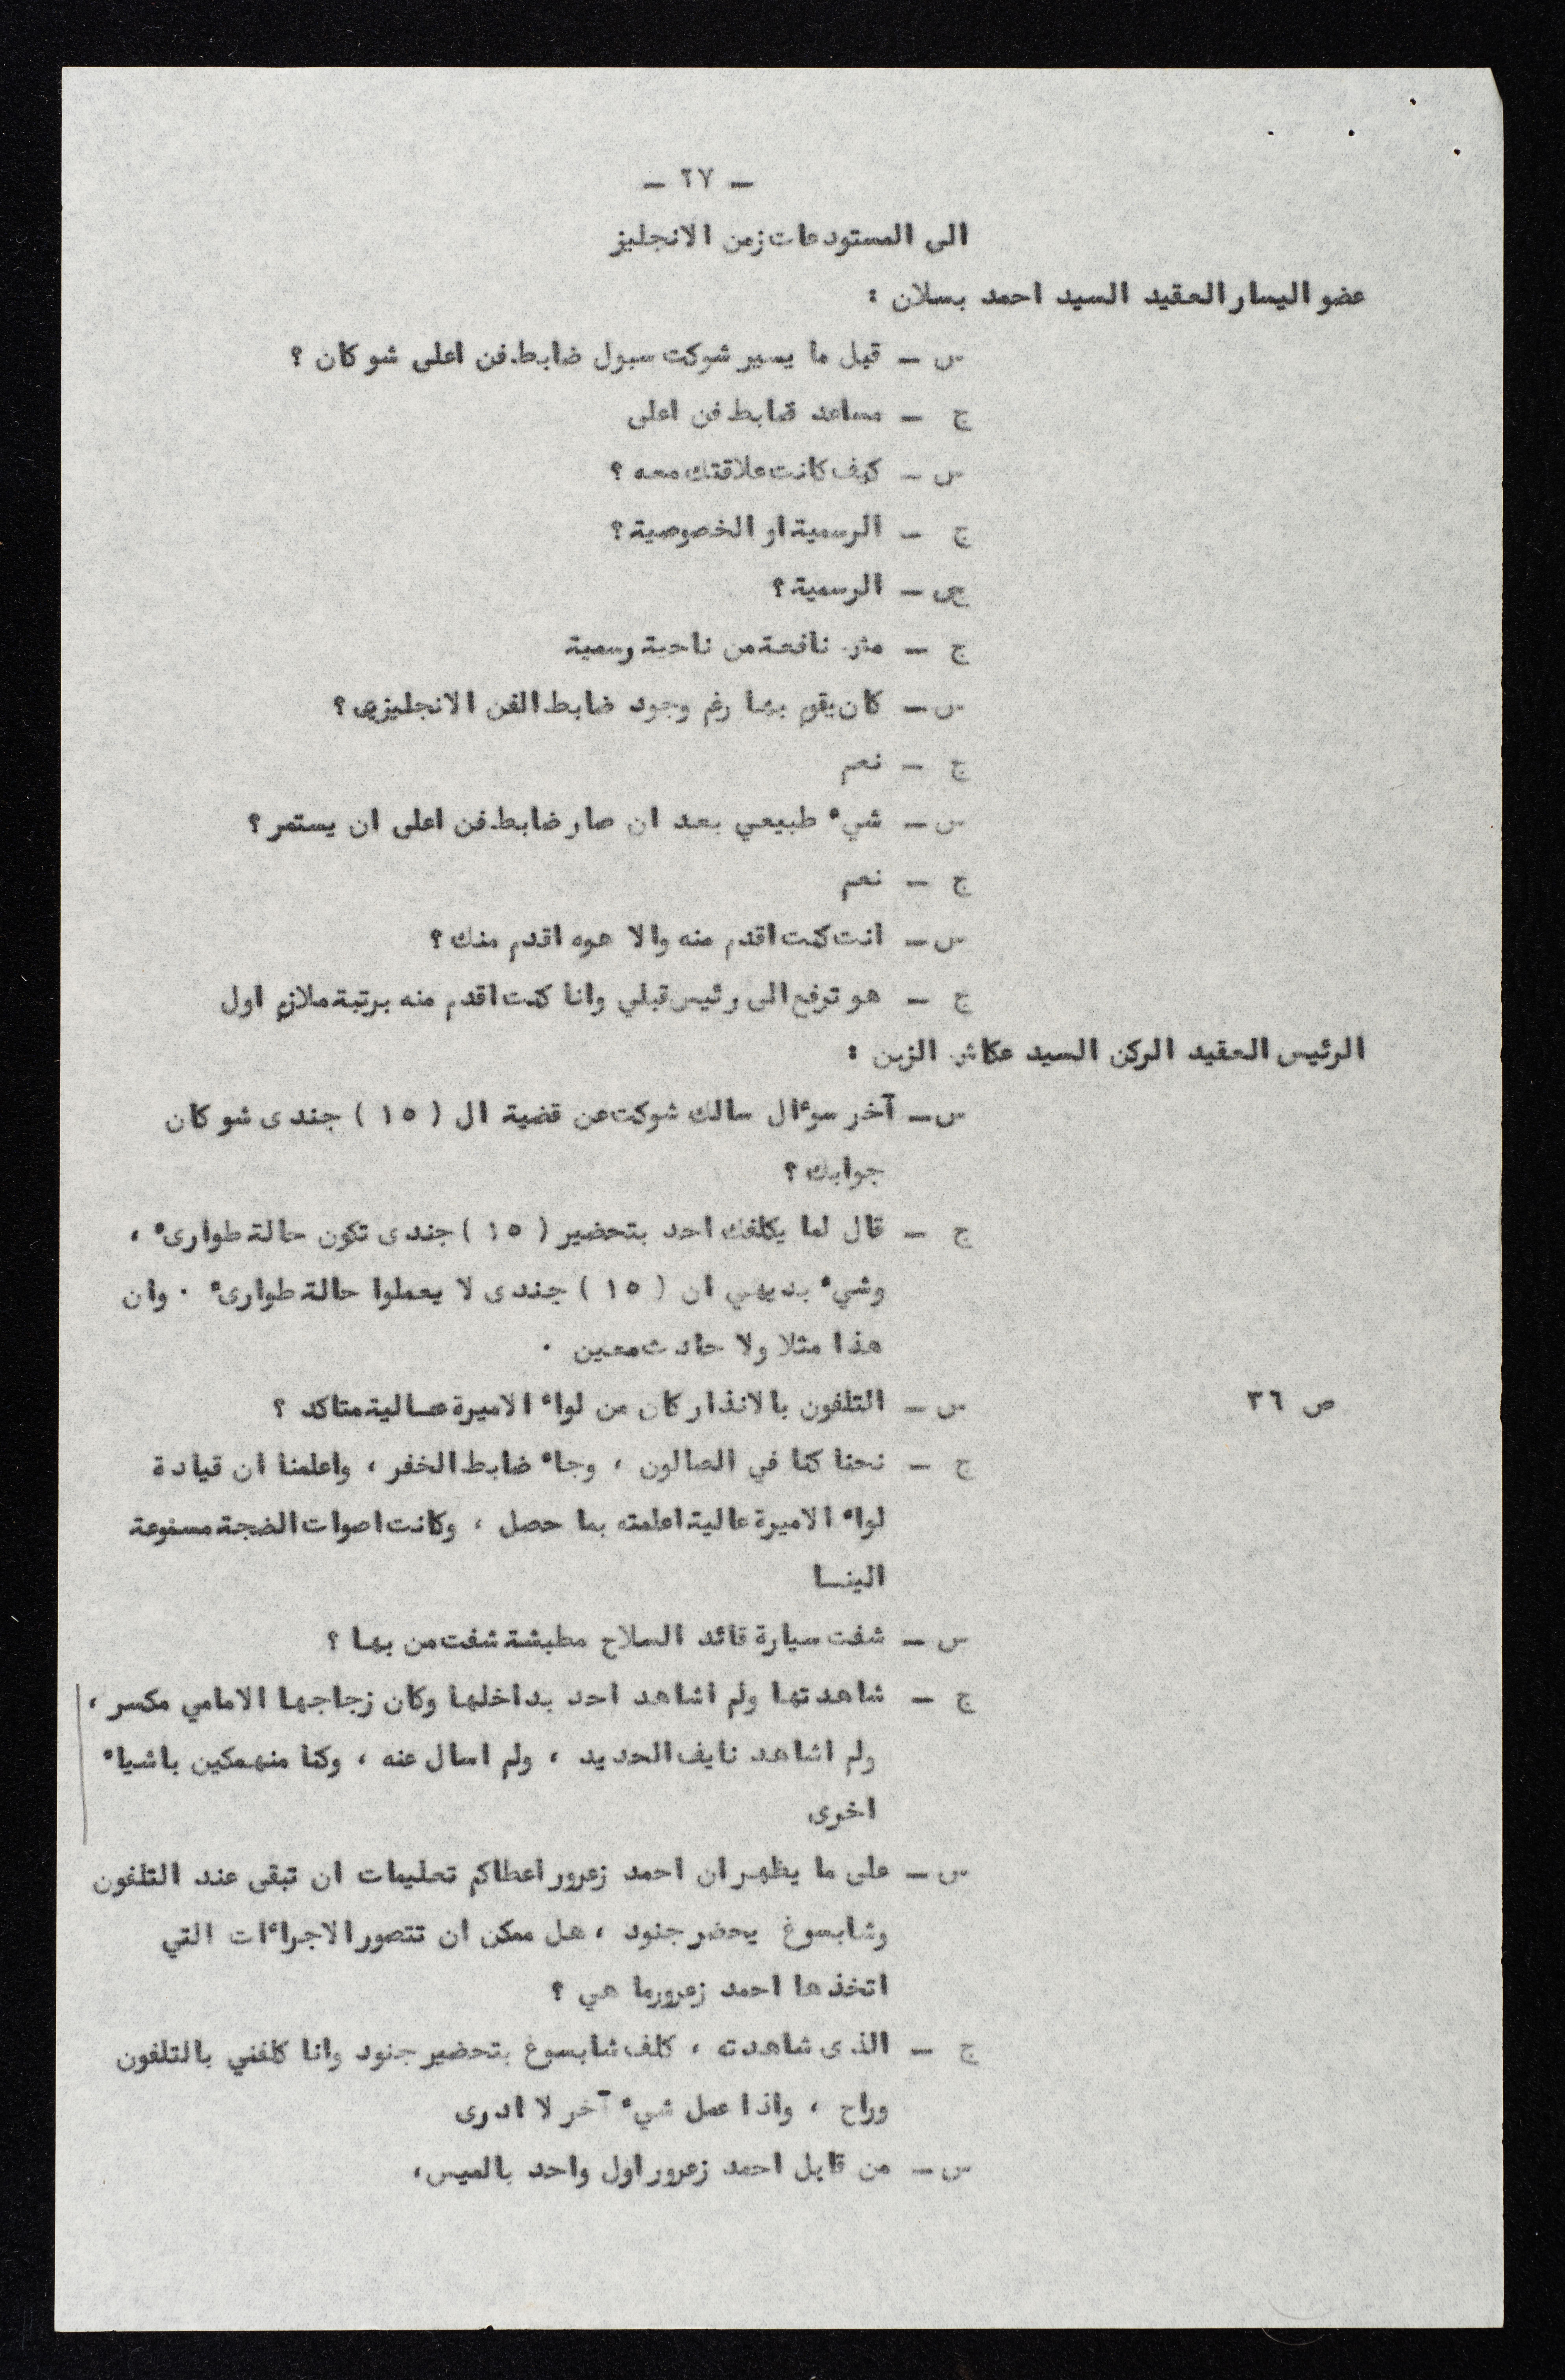 — ٢٧ —
الى المستودعات زمن الانجليز
عضو اليسار العقيد السيد احمد بسلان :
س — قبل ما يسير شوكت سبول ضابط فن اعلى شو كان ؟
ج — مساعد ضابط فن اعلى
س — كيف كانت علاقتك معه ؟
ج — الرسمية او الخصوصية ؟
س — الرسمية ؟
ج — مش نافعة من ناحية رسمية
س — كان يقوم بها رغم وجود ضابط الفن الانجليزي ؟
ج — نعم
س — شيء طبيعي بعد ان صار ضابط فن اعلى ان يستمر ؟
ج — نعم
س — انت كنت اقدم منه والا هوه اقدم منك ؟
ج — هو ترفع الى رئيس قبلي وانا كنت اقدم منه برتبة ملازم اول
الرئيس العقيد الركن السيد عكاش الزبن :
س — آخر سوءال سالك شوكت عن قضية ال ( ١٥ ) جندى شو كان
جوابك ؟
ج — قال لما يكلفك احد بتحضير ( ١٥ ) جندى تكون حالة طوارىء ،
وشيء بديهي ان ( ١٥ ) جندى لا يعملوا حالة طوارىء . وان
هذا مثلا ولا حادث معين .
ص ٣٦ س — التلفون بالانذار كان من لواء الاميرة عـالية متاكد ؟
ج — نحنا كنا في الصالون ، وجاء ضابط الخفر ، واعلمنا ان قيادة
لواء الاميرة عالية اعلمته بما حصل ، وكانت اصوات الضجة مسموعة
الينـا
س — شفت سيارة قائد السلاح مطبشة شفت من بها ؟
ج — شاهدتها ولم اشاهد احد بداخلها وكان زجاجها الامامي مكسر ،
ولم اشاهد نايف الحديد ، ولم اسال عنه ، وكنا منهمكين باشياء
اخرى
س — على ما يظهـر ان احمد زعرور اعطاكم تعليمات ان تبقى عند التلفون
وشابسوغ يحضر جنود ، هل ممكن ان تتصور الاجراءات التي
اتخذها احمد زعرور ما هي ؟
ج — الذى شاهدته ، كلف شابسوغ بتحضير جنود وانا كلفني بالتلفون
وراح ، واذا عمل شيء آخر لا ادرى
س — من قابل احمد زعرور اول واحد بالميس،